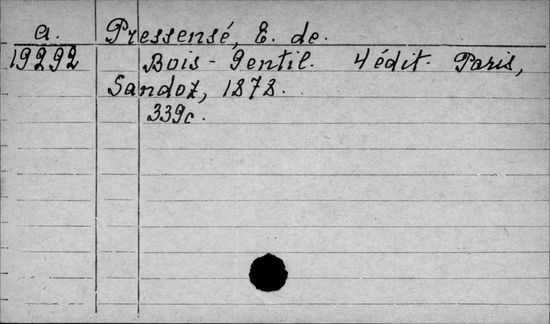 a. Pressensé, E. de.
19292 Bois-Gentil. 4 édit. Paris,
Sandoz, 1878.
339c.